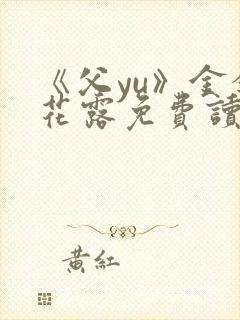 《父yu》金金
花露免費讀
黃紅